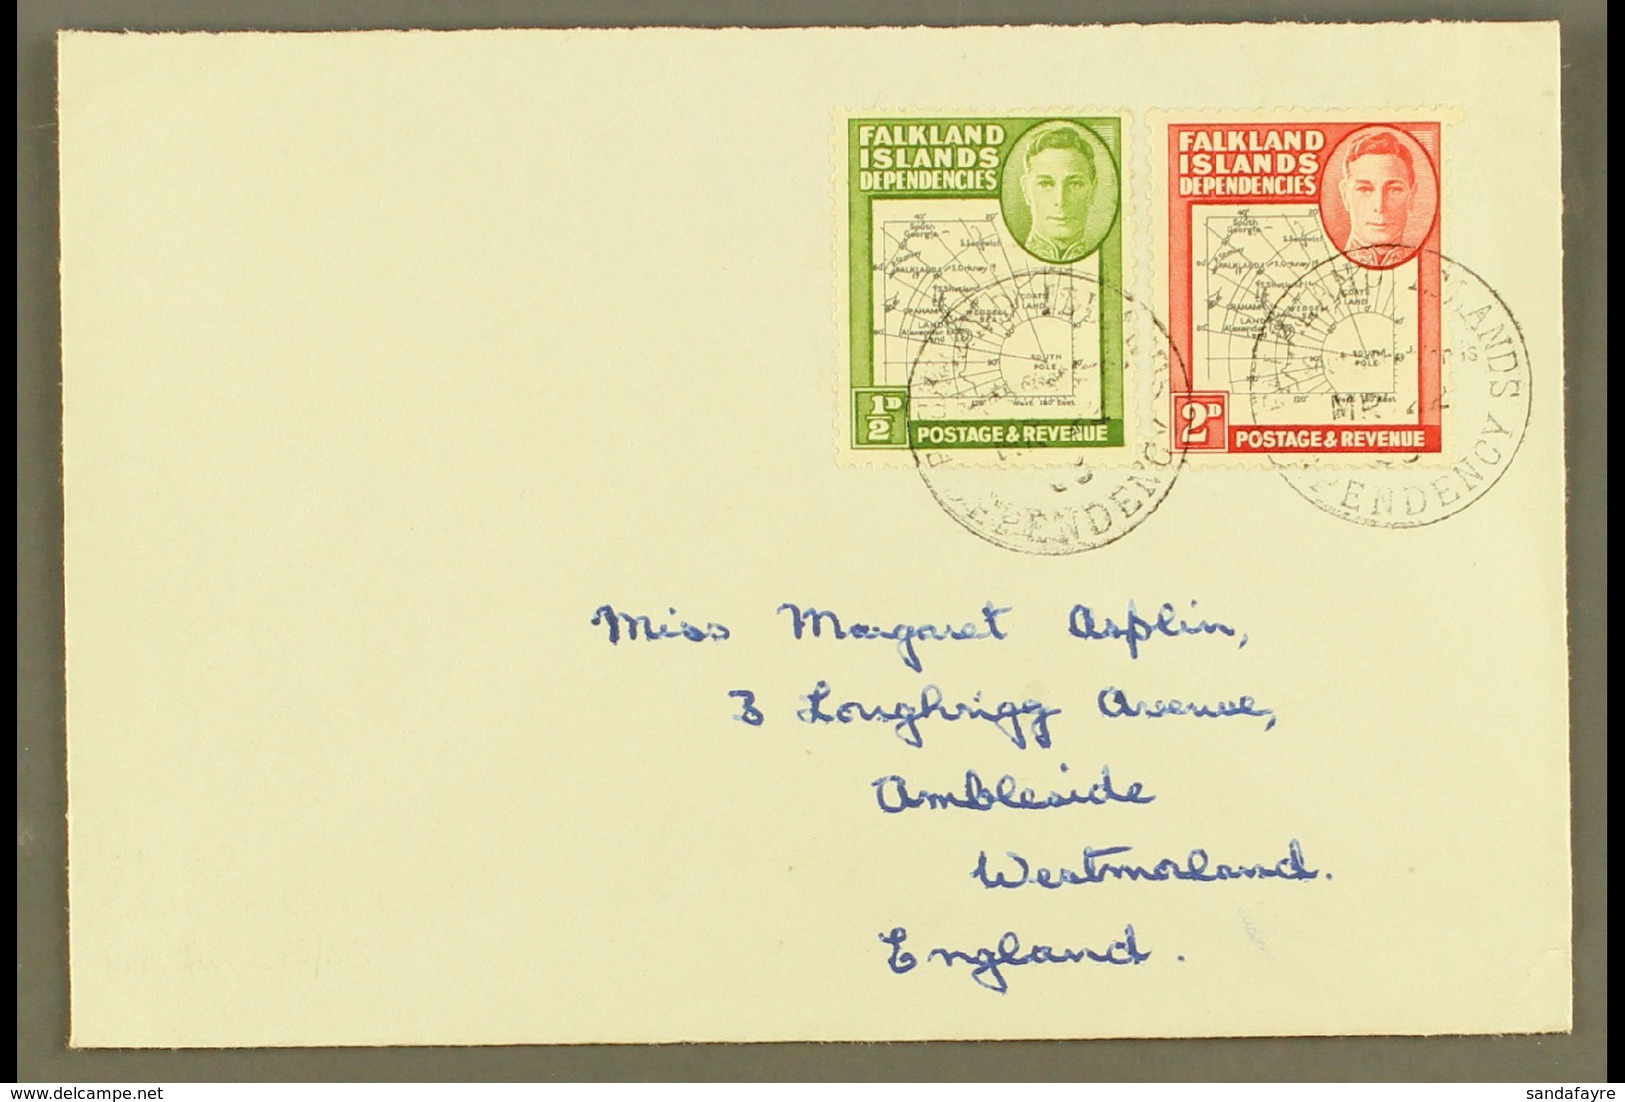 FALKLAND
ISLANDS
DEPENDENCIES
40° 20°
South
Georgia
S.Sandwich
FALKLANDS
S.Orkney Is
S.Shetland Is
COATS
LAND
GRAHAM
LAND
WEDDELL
SEA
Alexander I
Land
SOUTH
POLE
120° West 180° East
½D
POSTAGE & REVENUE
FALKLAND
ISLANDS
DEPENDENCIES
40° 20°
South
Georgia
S.Sandwich
FALKLANDS
S.Orkney Is
S.Shetland Is
COATS
LAND
GRAHAM
LAND
WEDDELL
SEA
Alexander I
Land
SOUTH
POLE
120° West 180° East
2D
POSTAGE & REVENUE
DEPENDENCY
ISLANDS
MR 22
DEPENDENCY
Miss Margaret Asplin,
3 Loughrigg Avenue,
Ambleside
Westmorland.
England.
delcampe.net
sandafayre